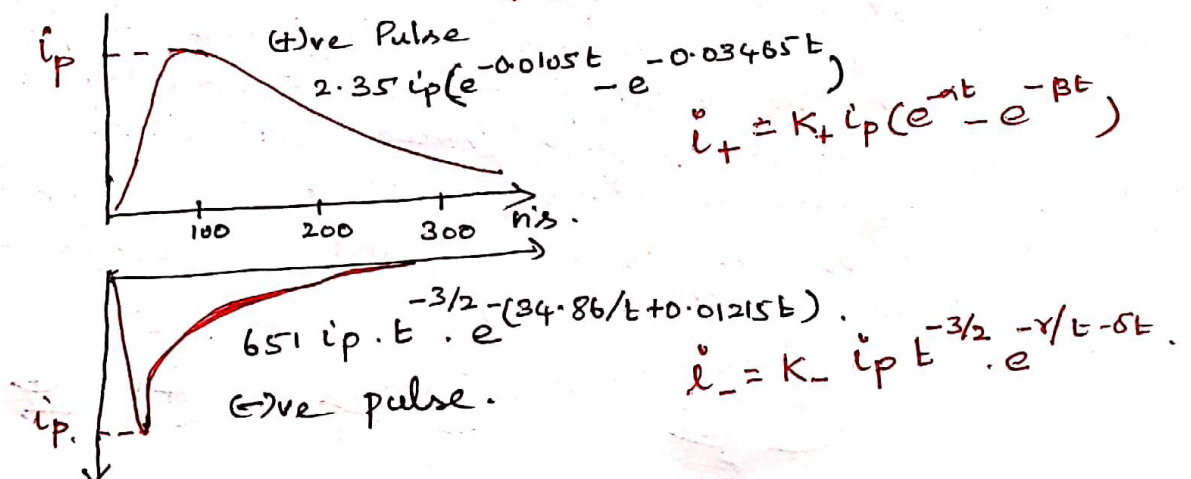 (+)ve Pulse
ip
2.35 ip(e^-0.0105t - e^-0.03465t)
i+ = K+ ip(e^-αt - e^-βt)
100 200 300 n's.
651 ip.t^-3/2 . e^-(34.86/t+0.01215t).
i_ = K_ ip t^-3/2 . e^-γ/t-δt.
(-)ve pulse.
ip.